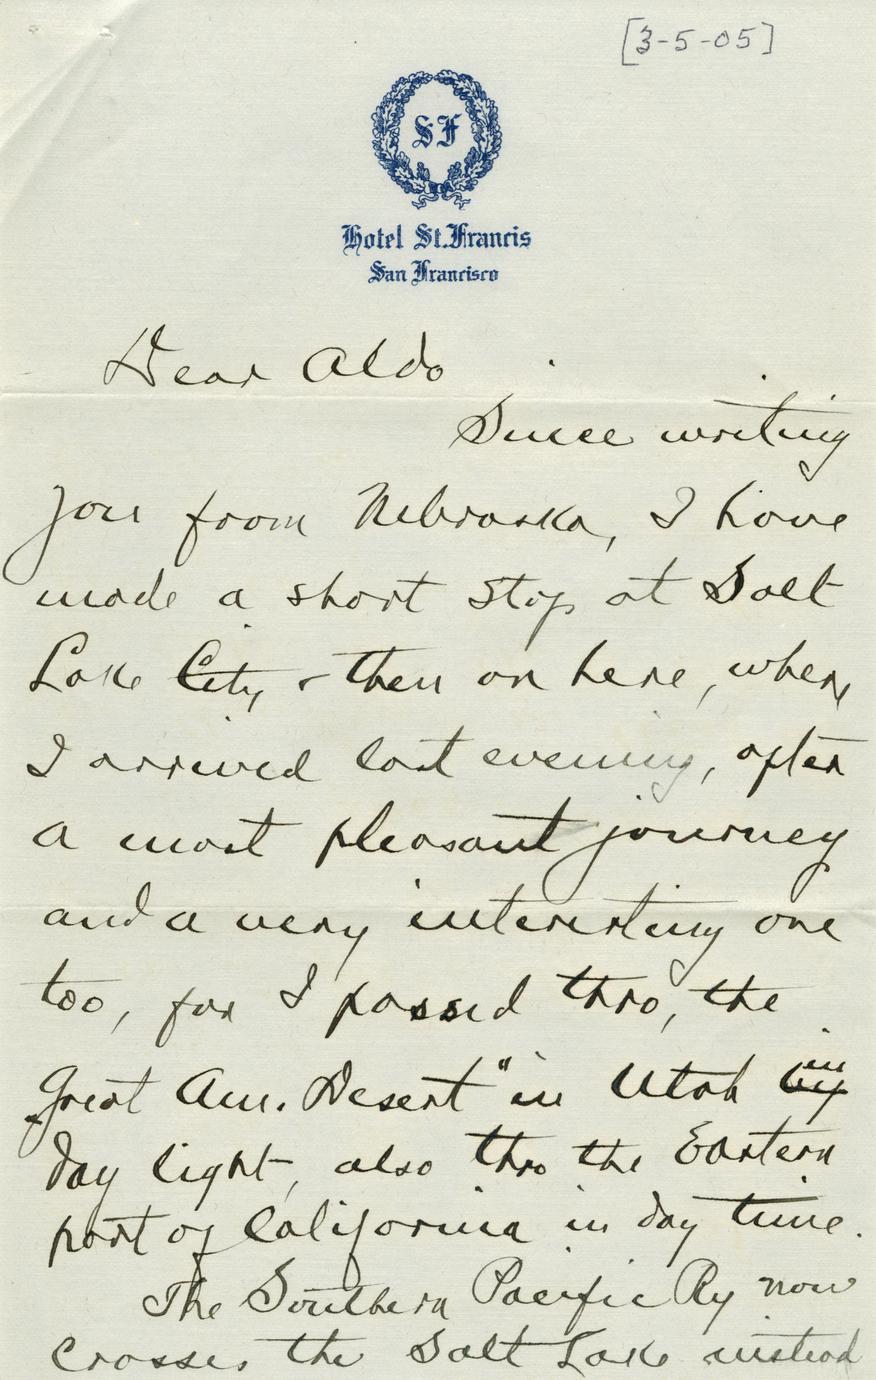 [3-5-05]
SF
Hotel St. Francis
San Francisco
Dear Aldo
Since writing
you from Nebraska, I have
made a short stop at Salt
Lake City, & then on here, where
I arrived last evening, after
a most pleasant journey
and a very interesting one
too, for I passed thro, the
"Great Am. Desert" in Utah by in
day light, also thro the Eastern
part of California in day time.
The Southern Pacific Ry now
crosses the Salt Lake instead